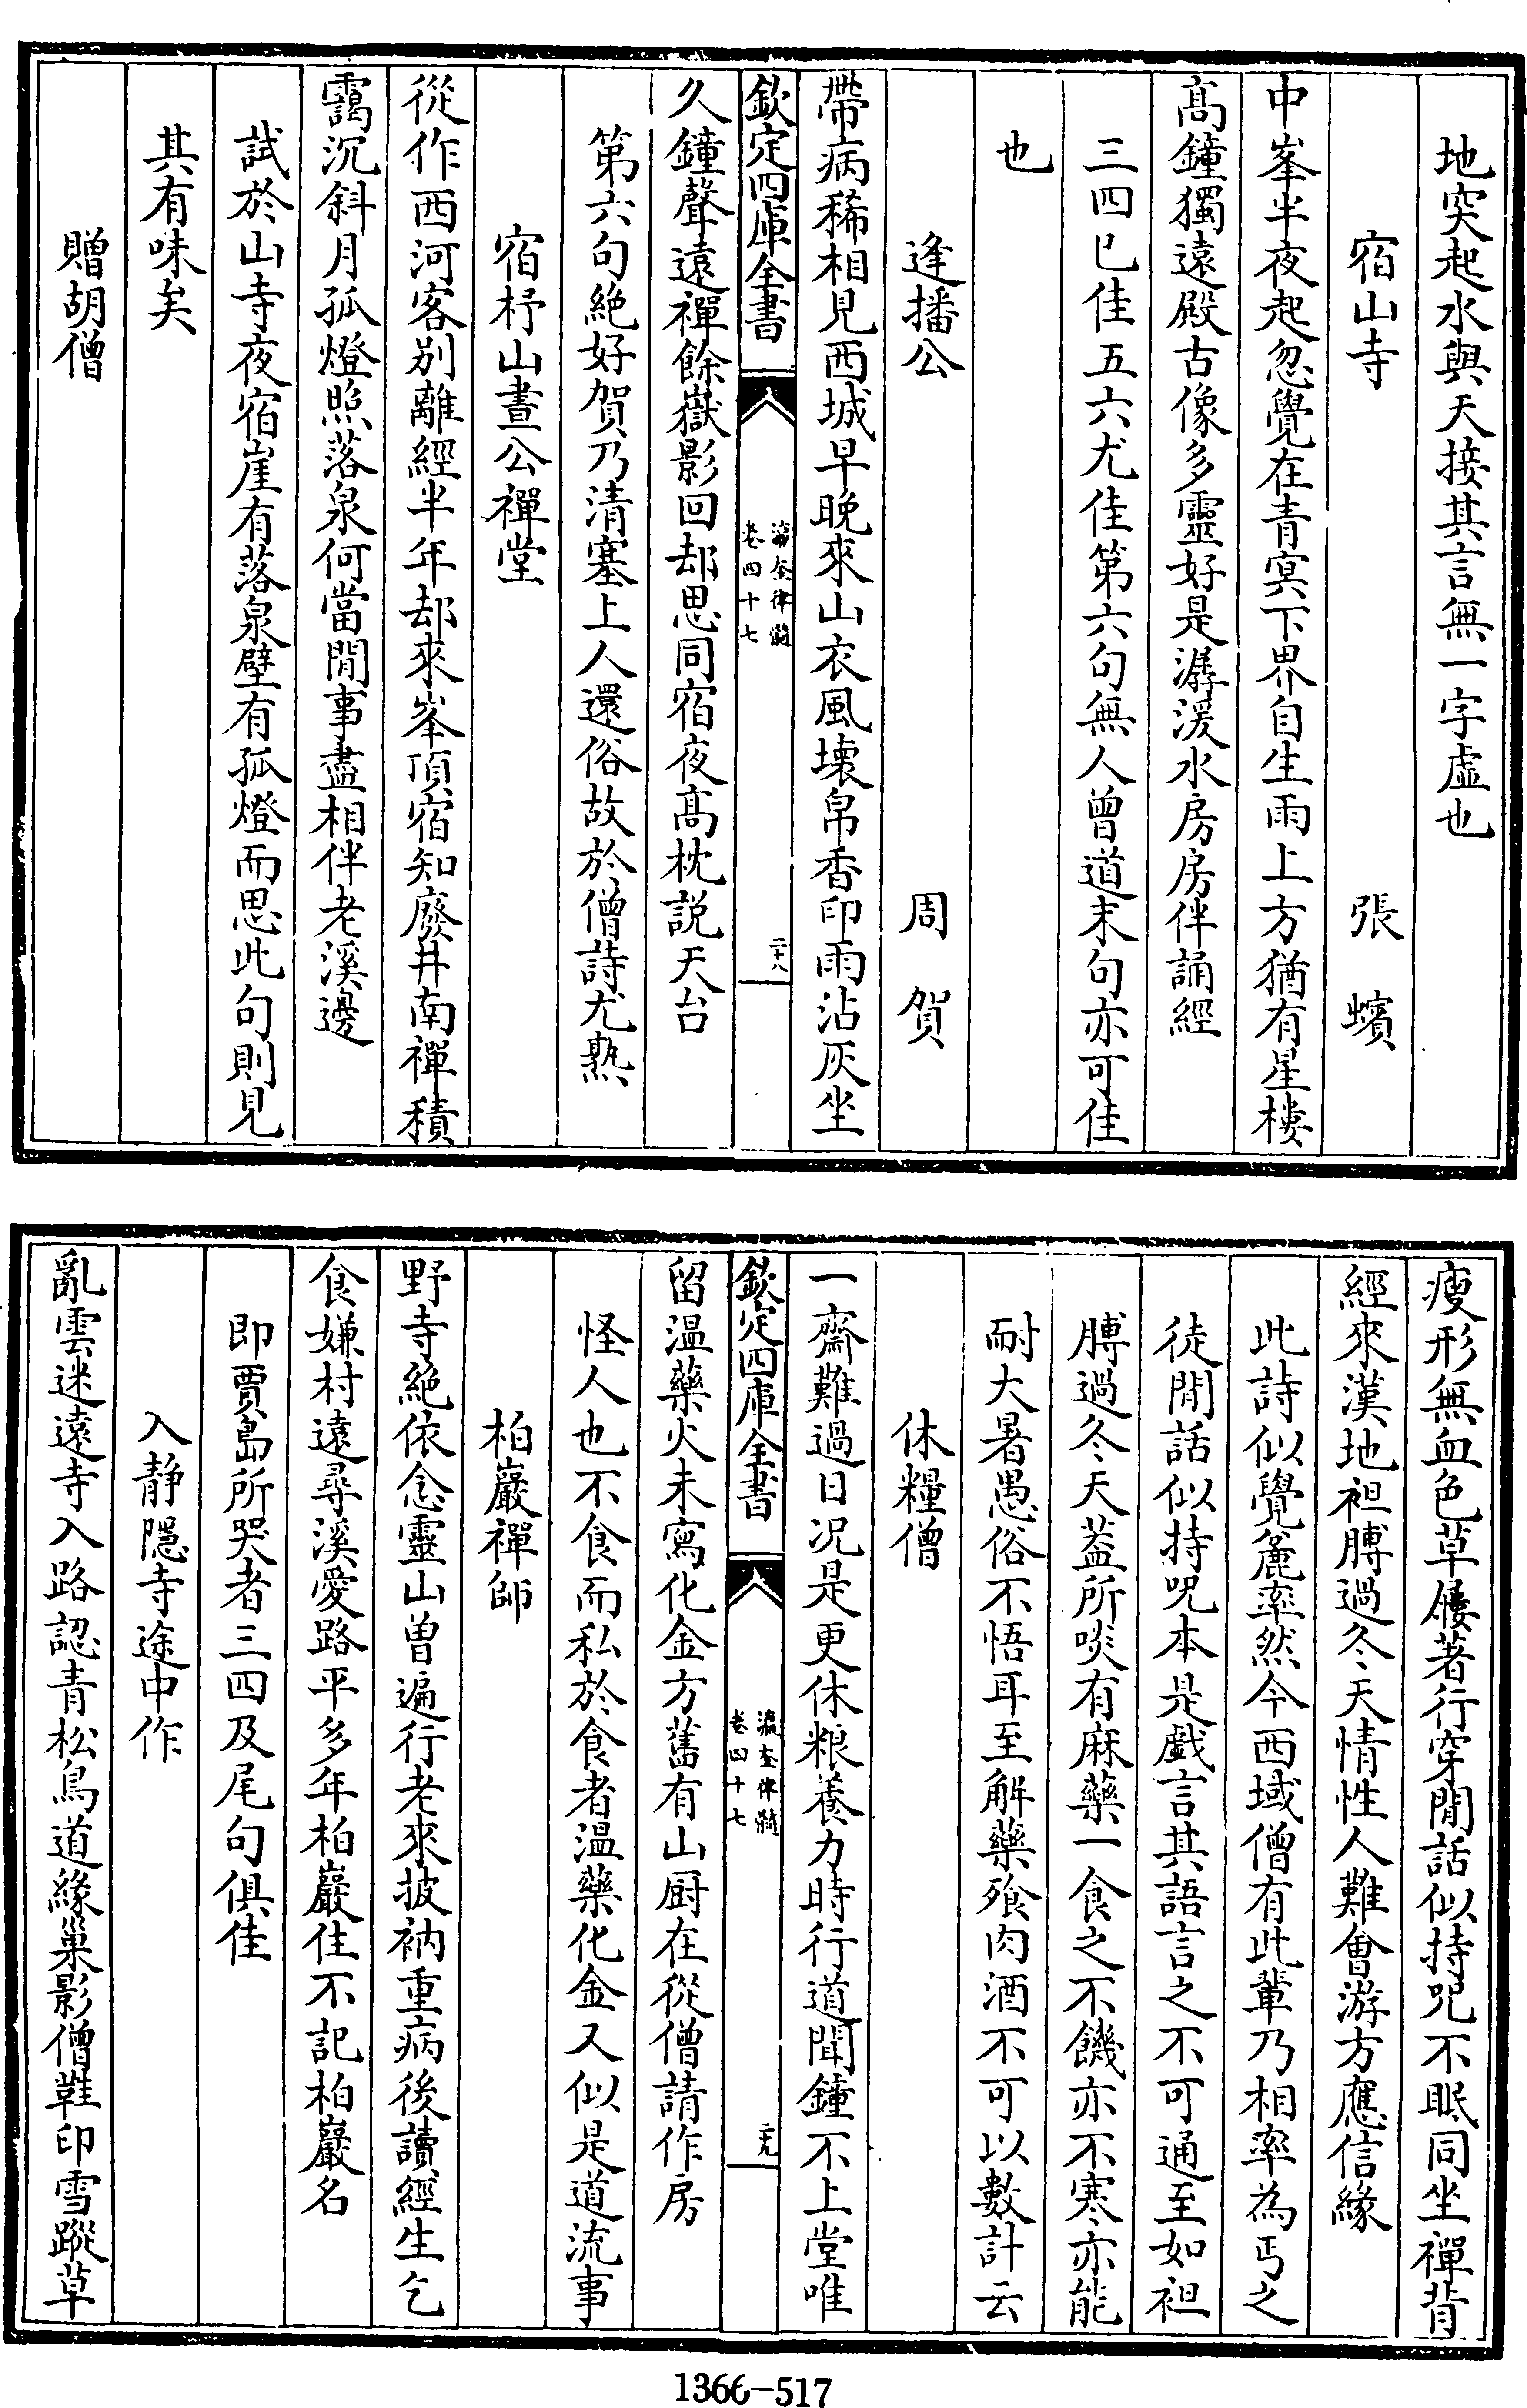 地突起水與天接其言無一字虛也
宿山寺 張蠙
中峯半夜起忽覺在青冥下界自生雨上方猶有星樓
高鐘獨遠殿古像多靈好是潺湲水房房伴誦經
三四已佳五六尤佳第六句無人曾道末句亦可佳
也
逢播公 周賀
帶病稀相見西城早晚來山衣風壞帛香印雨沾灰坐
欽定四庫全書
瀛奎律髓
卷四十七
二十八
久鐘聲遠禪餘嶽影回却思同宿夜高枕説天台
第六句絶好賀乃清塞上人還俗故於僧詩尤熟
宿杼山晝公禪堂
從作西河客别離經半年却來峯頂宿知廢井南禪積
靄沉斜月孤燈照落泉何當閒事盡相伴老溪邊
試於山寺夜宿崖有落泉壁有孤燈而思此句則見
其有味矣
贈胡僧
瘦形無血色草屨著行穿閒話似持呪不眠同坐禪背
經來漢地袒膊過冬天情性人難會游方應信緣
此詩似覺麄率然今西域僧有此輩乃相率為丐之
徒閒話似持呪本是戲言其語言之不可通至如袒
膊過冬天葢所啖有麻藥一食之不饑亦不寒亦能
耐大暑愚俗不悟耳至解藥飱肉酒不可以數計云
休糧僧
一齋難過日況是更休粮養力時行道聞鐘不上堂唯
欽定四庫全書
瀛奎律髓
卷四十七
二十九
留温藥火未寫化金方舊有山厨在從僧請作房
怪人也不食而私於食者温藥化金又似是道流事
柏巖禪師
野寺絶依念靈山曽遍行老來披衲重病後讀經生乞
食嫌村遠尋溪愛路平多年柏巖住不記柏巖名
即賈島所哭者三四及尾句俱佳
入静隱寺途中作
亂雲迷遠寺入路認青松鳥道緣巢影僧鞋印雪蹤草
1366-517